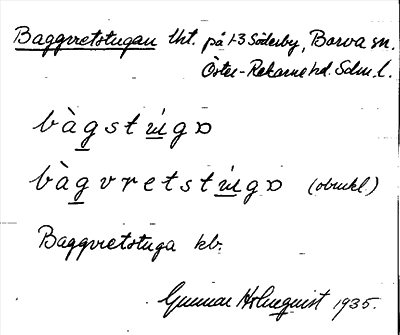 Baggvretstugan tht. på 1-3 Söderby, Barva sn.
Öster-Rekarne hd. Sdm. l.
bàgstúgɒ
bàgvretstúgɒ (obrukl.)
Baggvretstuga kb.
Gunnar Holmquist 1935.